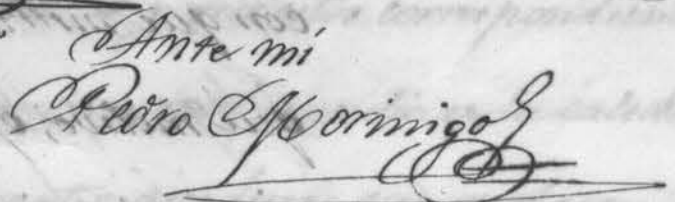 Ante mí
Pedro Morinigo